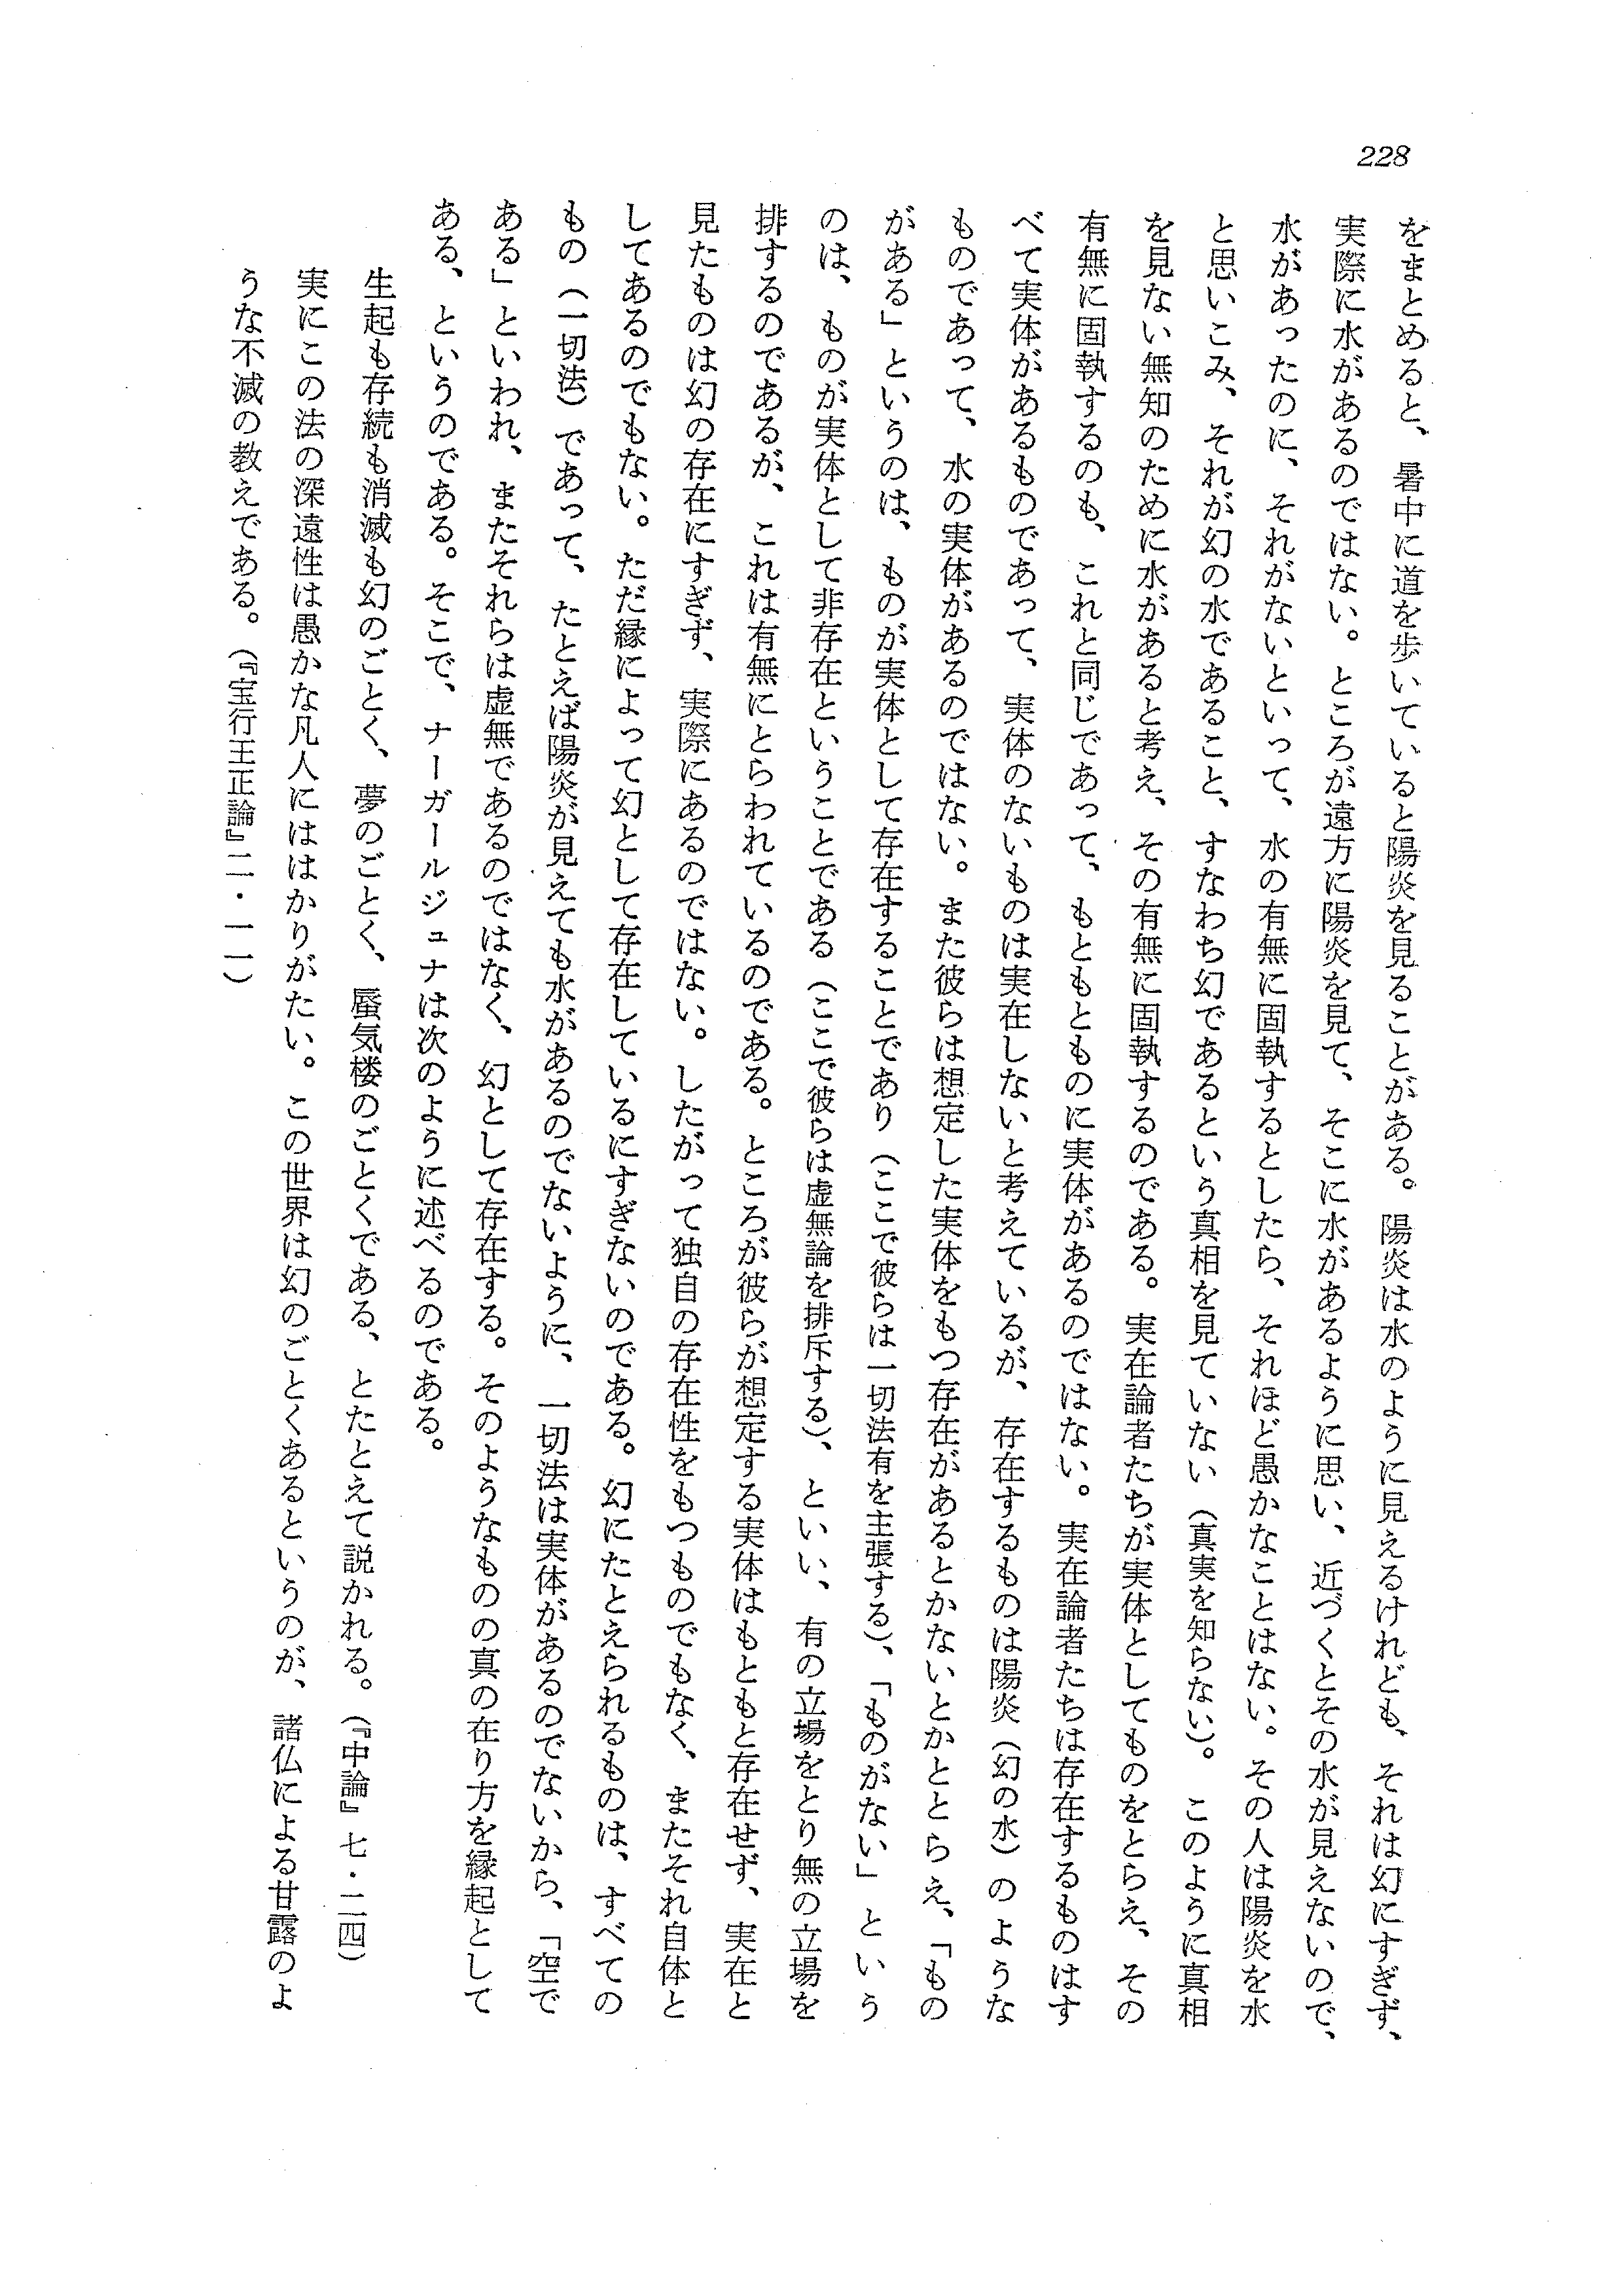 228
をまとめると、暑中に道を歩いていると陽炎を見ることがある。陽炎は水のように見えるけれども、それは幻にすぎず、
実際に水があるのではない。ところが遠方に陽炎を見て、そこに水があるように思い、近づくとその水が見えないので、
水があったのに、それがないといって、水の有無に固執するとしたら、それほど愚かなことはない。その人は陽炎を水
と思いこみ、それが幻の水であること、すなわち幻であるという真相を見ていない（真実を知らない）。このように真相
を見ない無知のために水があると考え、その有無に固執するのである。実在論者たちが実体としてものをとらえ、その
有無に固執するのも、これと同じであって、もともとものに実体があるのではない。実在論者たちは存在するものはす
べて実体があるものであって、実体のないものは実在しないと考えているが、存在するものは陽炎（幻の水）のような
ものであって、水の実体があるのではない。また彼らは想定した実体をもつ存在があるとかないとかととらえ、「もの
がある」というのは、ものが実体として存在することであり（ここで彼らは一切法有を主張する）、「ものがない」という
のは、ものが実体として非存在ということである（ここで彼らは虚無論を排斥する）、といい、有の立場をとり無の立場を
排するのであるが、これは有無にとらわれているのである。ところが彼らが想定する実体はもともと存在せず、実在と
見たものは幻の存在にすぎず、実際にあるのではない。したがって独自の存在性をもつものでもなく、またそれ自体と
してあるのでもない。ただ縁によって幻として存在しているにすぎないのである。幻にたとえられるものは、すべての
もの（一切法）であって、たとえば陽炎が見えても水があるのでないように、一切法は実体があるのでないから、「空で
ある」といわれ、またそれらは虚無であるのではなく、幻として存在する。そのようなものの真の在り方を縁起として
ある、というのである。そこで、ナーガールジュナは次のように述べるのである。
生起も存続も消滅も幻のごとく、夢のごとく、蜃気楼のごとくである、とたとえて説かれる。（『中論』七・二四）
実にこの法の深遠性は愚かな凡人にははかりがたい。この世界は幻のごとくあるというのが、諸仏による甘露のよ
うな不滅の教えである。（『宝行王正論』二・一一）